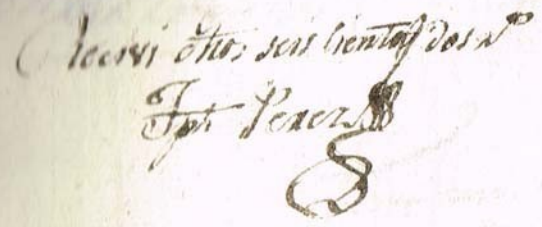 Recivi dhos seis cientos dos rs
Jph Perez